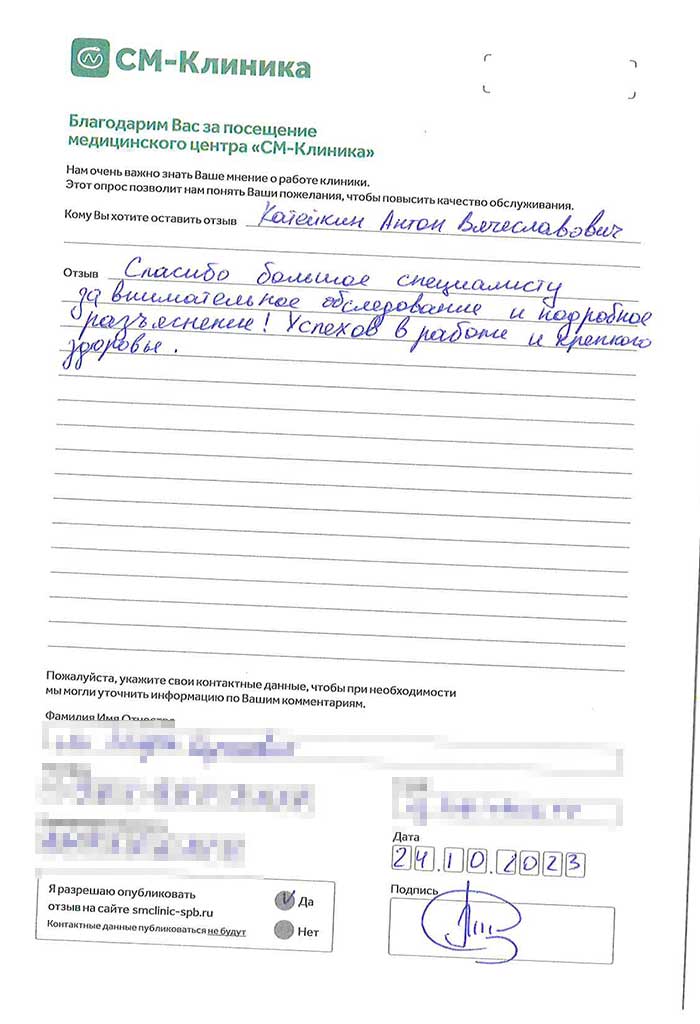 СМ-Клиника
Благодарим Вас за посещение
медицинского центра «СМ-Клиника»
Нам очень важно знать Ваше мнение о работе клиники.
Этот опрос позволит нам понять Ваши пожелания, чтобы повысить качество обслуживания.
Кому Вы хотите оставить отзыв Катейкин Антон Вячеславович
Отзыв Спасибо большое специалисту
за внимательное обследование и подробное
разъяснение! Успехов в работе и крепкого
здоровье.
Пожалуйста, укажите свои контактные данные, чтобы при необходимости
мы могли уточнить информацию по Вашим комментариям.
Фамилия Имя Отчество
Дата
24.10.2023
Я разрешаю опубликовать
отзыв на сайте smclinic-spb.ru
Контактные данные публиковаться не будут
Да
Нет
Подпись